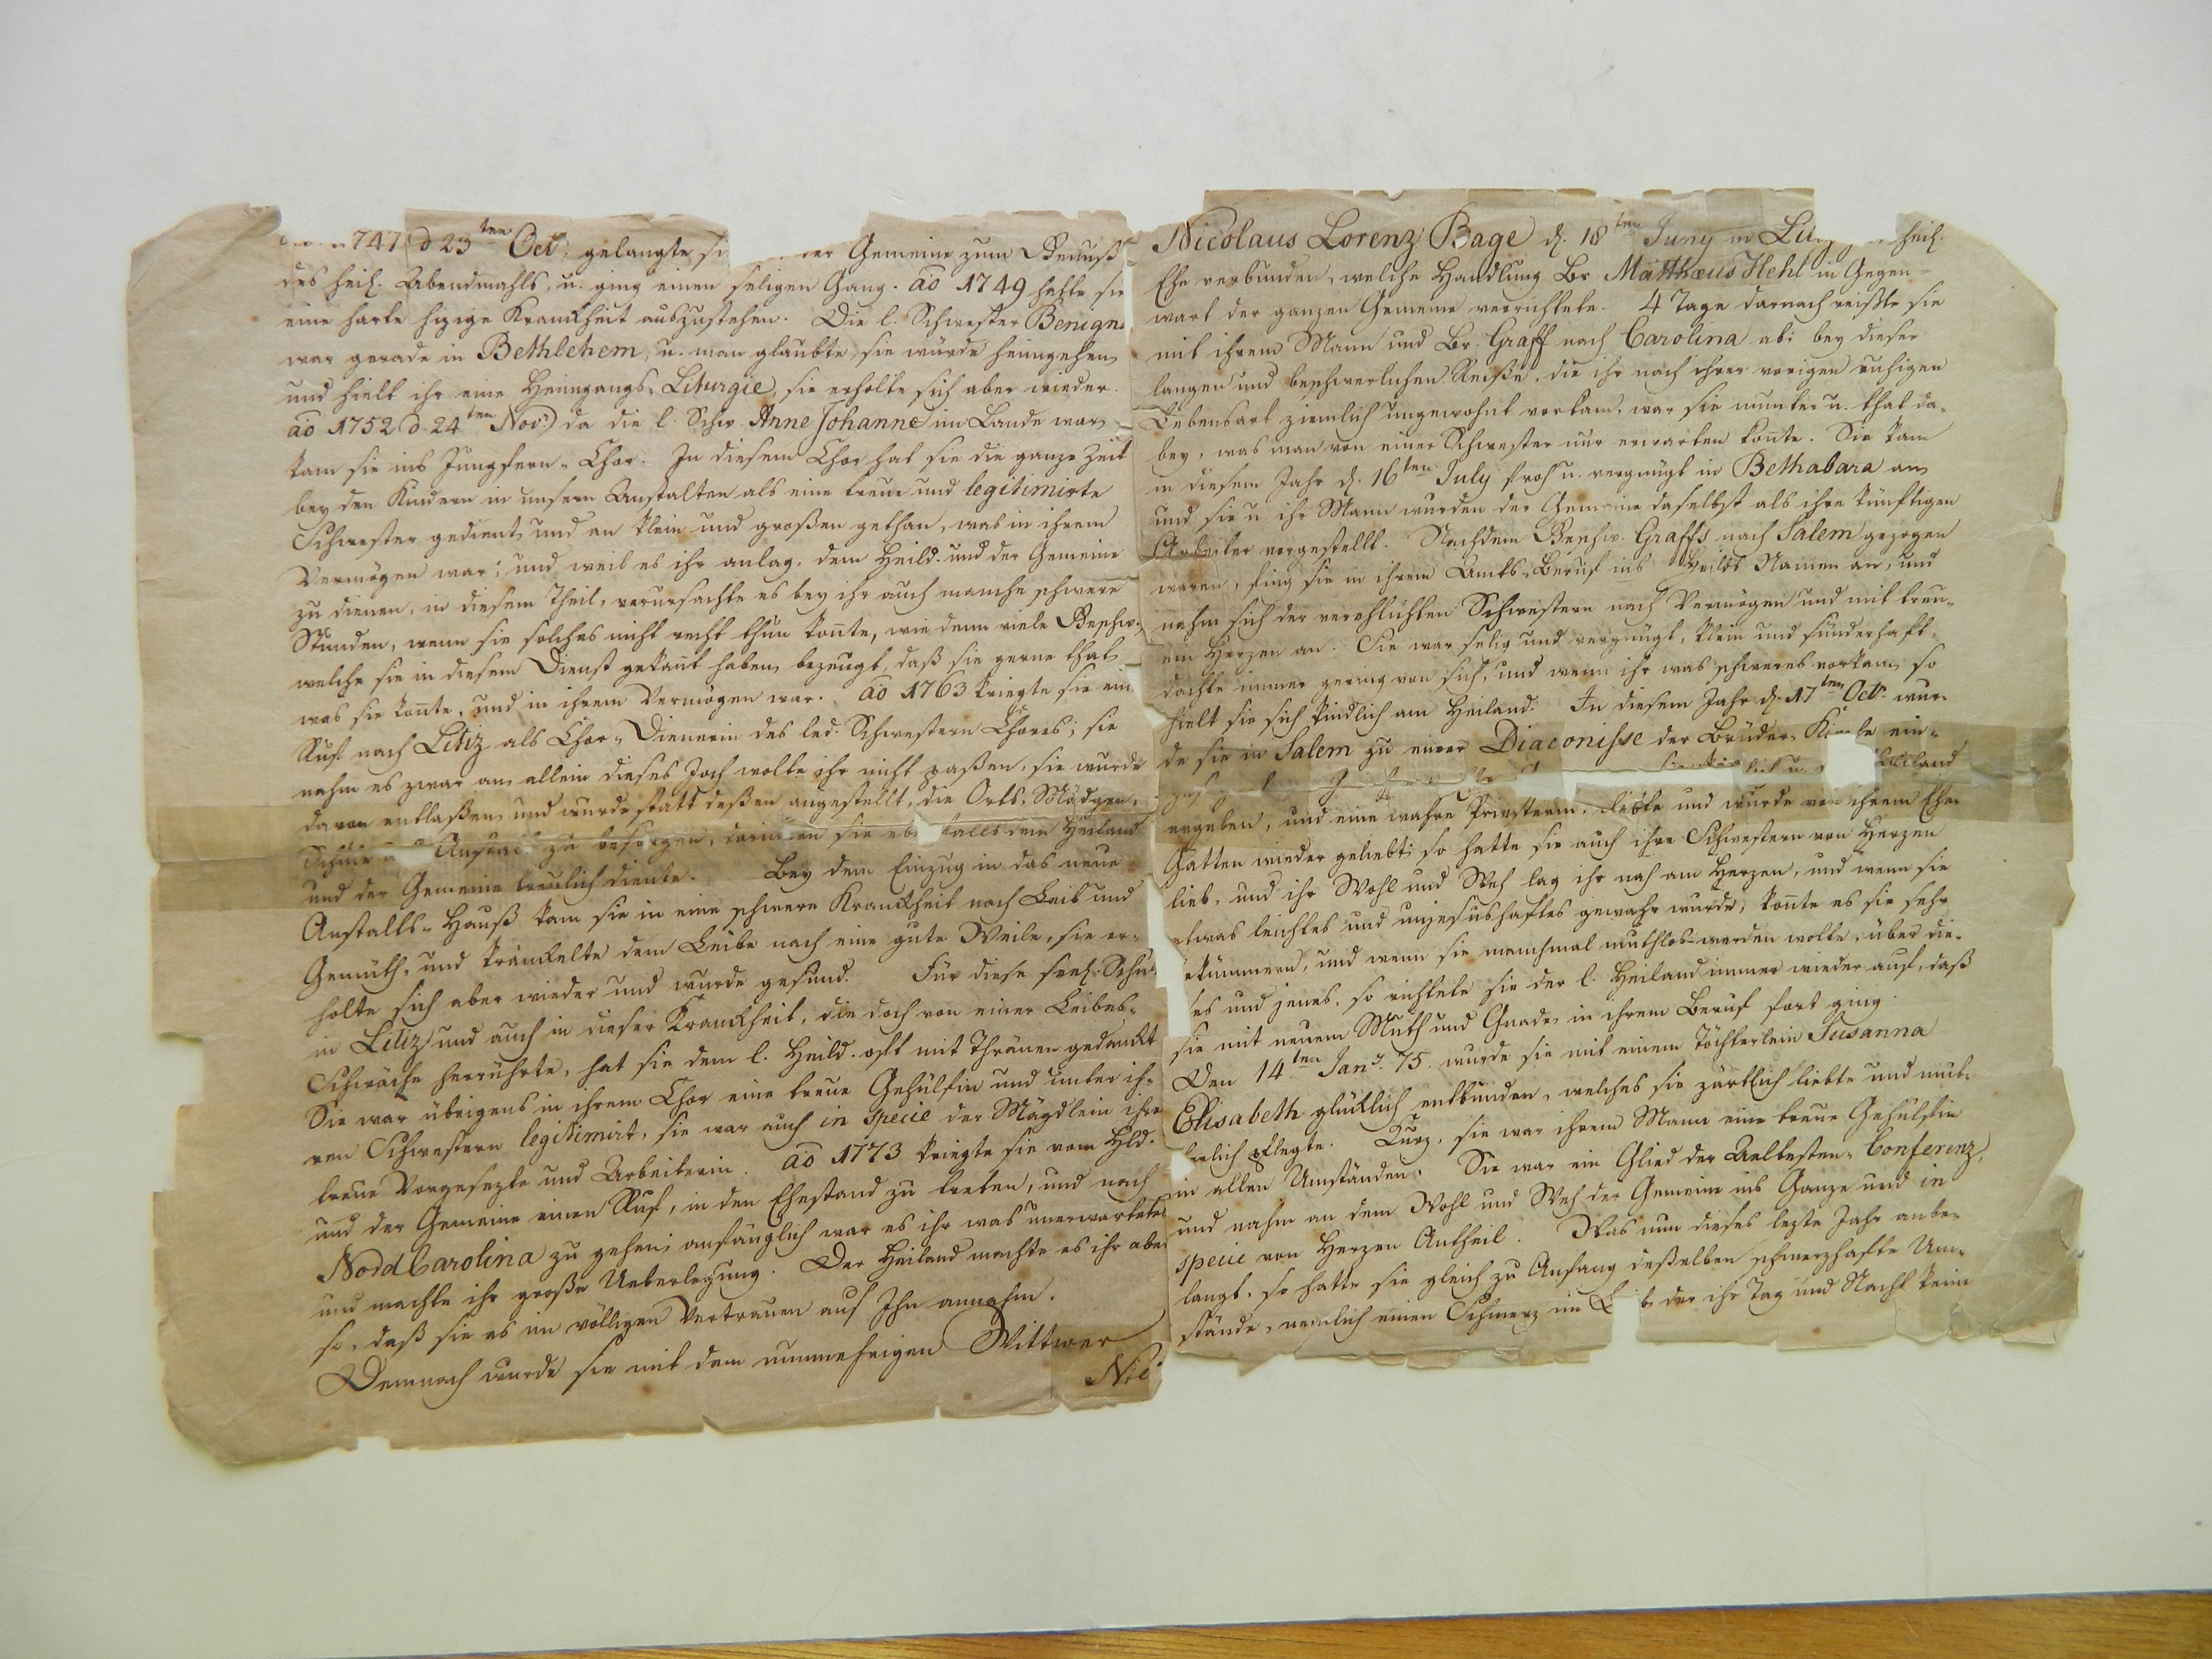 1747 d 23ten Oct. gelangte si der Gemeine zum Genuß
des heil. Abendmahls, u. ging einen seligen Gang. aō 1749 hatte sie
eine harte hizige Kranckheit auszustehen. Die l. Schwester Benigna
war gerade in Bethlehem, u. man glaubte, sie würde heimgehen,
und hielt ihr eine Heimgangs-Liturgie, sie erholte sich aber wieder.
aō 1752 d. 24ten Novr. da die l. Schw. Anne Johanne im Lande war,
kam sie ins Jungfern-Chor. In diesem Chor hat sie die ganze Zeit
bey den Kindern in unsern Anstalten als eine treue und legitimirte
Schwester gedient, und an klein und großen gethan, was in ihrem
Vermögen war; und weil es ihr anlag, dem Heild. und der Gemeine
zu dienen, in diesem Theil, verursachte es bey ihr auch manche schwere
Stunden, wenn sie solches nicht recht thun konte, wie denn viele Geschw.
welche sie in diesem Dienst gekant haben, bezeugt, daß sie gerne that,
was sie konte, und in ihrem Vermögen war. aō 1763 kriegte sie ein
Ruf nach Litiz als Chor-Dienerin des led. Schwestern Chores; sie
nahm es zwar an, allein dieses Joch wolte ihr nicht paßen, sie wurde
davon entlaßen, und wurde statt deßen angestellt, die Orts-Mädgen-
Schule u Anstalt zu besorgen, darinnen sie ebenfalls dem Heiland
und der Gemeine treulich diente. Bey dem Einzug in das neue
Anstalts-Hauß kam sie in eine schwere Kranckheit nach Leib und
Gemüth, und kränkelte dem Leibe nach eine gute Weile, sie er-
holte sich aber wieder und wurde gesund. Für diese seel. Schu
in Litiz, und auch in dieser Kranckheit, die doch von einer Leibes-
Schwäche herrührte, hat sie dem l. Heild. oft mit Thränen gedanckt
Sie war übrigens in ihrem Chor eine treue Gehülfin und unter ih-
ren Schwestern legitimirt, sie war auch in specie der Mägdlein ihre
treue Vorgesezte und Arbeiterin. aō 1773 kriegte sie vom Hld.
und der Gemeine einen Ruf, in den Ehestand zu treten, und nach
Nord Carolina zu gehen; anfänglich war es ihr was unerwartetes
und machte ihr große Ueberlegung. Der Heiland machte es ihr aber
so, daß sie es im völligen Vertrauen auf Ihn annahm.
Demnach wurde sie mit dem nunmehrigen Wittwer
Nic
Nicolaus Lorenz Bage d. 18ten Juny in Lit heil.
Ehe verbunden, welche Handlung Br. Matthæus Hehl in Gegen-
wart der ganzen Gemeine verrichtete. 4 Tage darnach reißte sie
mit ihrem Mann und Br. Graff nach Carolina ab; bey dieser
langen und beschwerlichen Reiße, die ihr nach ihrer vorigen ruhigen
Lebensart ziemlich ungewohnt vorkam, war sie munter u. that da-
bey, was man von einer Schwester nur erwarten konte. Sie kam
in diesem Jahr d. 16ten July froh u. vergnügt in Bethabara an,
und sie u. ihr Mann wurden der Gemeine daselbst als ihre künftigen
Arbeiter vorgestellt. Nachdem Geschw. Graffs nach Salem gezogen
waren, fing sie in ihrem Amts-Beruf ins Heilds Namen an, und
nahm sich der verehlichten Schwestern nach Vermögen und mit treu-
em Herzen an. Sie war selig und vergnügt, klein und sünderhaft,
dachte immer gering von sich, und wenn ihr was schweres vorkam, so
hielt sie sich kindlich am Heiland. In diesem Jahr d. 17ten Octr. wur-
de sie in Salem zu einer Diaconisse der Brüder-Kirche ein-
Heiland
ergeben, und eine wahre Priesterin, liebte und wurde von ihrem Ehe-
Gatten wieder geliebt; so hatte sie auch ihre Schwestern von Herzen
lieb, und ihr Wohl und Weh lag ihr nah am Herzen, und wenn sie
etwas leichtes und unjesushaftes gewahr wurde, konte es sie sehr
bekümmern, und wenn sie manchmal muthlos werden wolte, über die-
ses und jenes, so richtete sie der l. Heiland immer wieder auf, daß
sie mit neuem Muth und Gnade in ihrem Beruf fort ging.
Den 14ten Jany. 75. wurde sie mit einem Töchterlein Susanna
Elisabeth glücklich entbunden, welches sie zärtlich liebte und müt-
terlich pflegte. Kurz, sie war ihrem Mann eine treue Gehülfin
in allen Umständen. Sie war ein Glied der Aeltesten-Conferenz,
und nahm an dem Wohl und Weh der Gemeine ins Ganze und in
specie von Herzen Antheil. Was nun dieses lezte Jahr anbe-
langt, so hatte sie gleich zu Anfang deßelben schmerzhafte Um-
stände, nemlich einen Schmerz im L b, der ihr Tag und Nacht keine